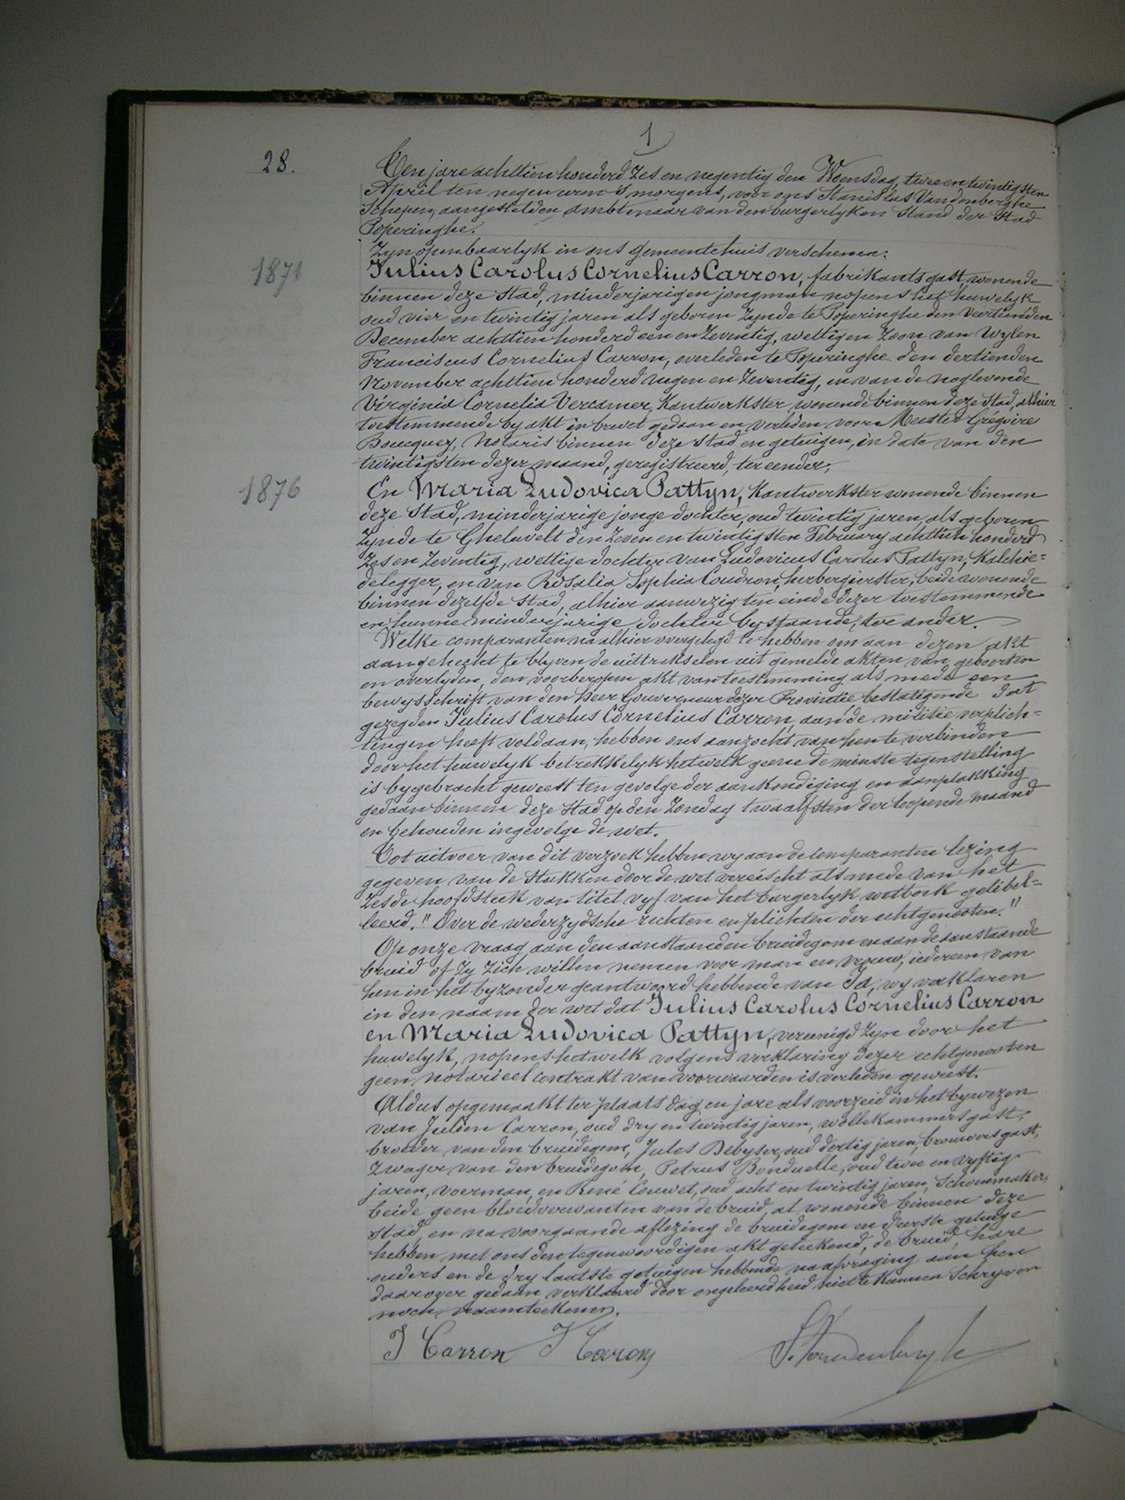 1
28.
Ten jare achttien honderd zes en negentig den Woensdag, twee en twintigsten
April ten negen uren 's morgens, voor ons Stanislas Vandenberghe
Schepen, aangestelden ambtenaar van den burgerlyken Stand der Stad
Poperinghe.
Zyn openbaarlyk in ons gemeentehuis verschenen:
1871
Julius Carolus Cornelius Carron, fabrikantsgast, wonende
binnen deze Stad, minderjarigen jongman nopens het huwelyk
oud vier en twintig jaren als geboren zynde te Poperinghe den veertienden
December achttien honderd een en zeventig, wettigen zoon van wylen
Franciscus Cornelius Carron, overleden te Poperinghe den dertienden
November achttien honderd negen en zeventig, en van de noglevende
Virginia Cornelia Vercamer, Kantwerkster, wonende binnen deze Stad, alhier
toestemmende by akt in brevet gedaan en verleden voor Meester Grégoire
Boucquey, Notaris binnen deze Stad en getuigen, in date van den
twintigsten dezer maand, geregistreerd, ter eender,
1876
En Maria Ludovica Pattyn, Kantwerkster wonende binnen
deze Stad, minderjarige jonge dochter, oud twintig jaren, als geboren
zynde te Gheluvelt den zeven en twintigsten February achttien honderd
zes en zeventig, wettige dochter van Ludovicus Carolus Pattyn, Kalchie=
delegger, en van Rosalia Sophia Coudron, herbergierster, beide wonende
binnen dezelfde Stad, alhier aanwezig ten einde dezer toestemmende
en hunne minderjarige dochter bystaande, ter ander.
Welke comparanten na alhier overgelegd te hebben om aan dezen akt
aangehecht te blyven de uittrekselen uit gemelde akten van geboorten
en overlyden, den voorberoepen akt van toestemming als mede een
bewysschrift van den Heer Gouverneur dezer Provincie bestatigende dat
gezegden Julius Carolus Cornelius Carron, aan de militie verplich=
tingen heeft voldaan, hebben ons aanzocht van hen te verbinden
door het huwelyk betrekkelyk hetwelk geene de minste tegenstelling
is bygebracht geweest ten gevolge der aankondiging en aanplakking
gedaan binnen deze Stad op den Zondag twaalfsten der loopende maand
en gehouden ingevolge de wet.
Tot uitvoer van dit verzoek hebben wy aan de comparanten lezing
gegeven van de Stukken door de wet vereischt als mede van het
zesde hoofdstuk van titel vyf van het burgerlyk wetboek gelibel=
leerd: "Over de wederzydsche rechten en plichten der echtgenooten."
Op onze vraag aan den aanstaanden bruidegom en aan de aanstaande
bruid of zy zich willen nemen voor man en vrouw, iedereen van
hen in het byzonder geantwoord hebbende van Ja, wy verklaren
in den naam der wet dat Julius Carolus Cornelius Carron
en Maria Ludovica Pattyn, vereenigd zyn door het
huwelyk, nopens hetwelk volgens verklaring dezer echtgenooten
geen notarieel contrakt van voorwaarden is verleden geweest.
Aldus opgemaakt ter plaats dag en jare als voorzeid in het bywezen
van Julien Carron, oud dry en twintig jaren, wollekammersgast,
broeder van den bruidegom, Jules Debyser, oud dertig jaren, brouwersgast,
zwager van den bruidegom, Petrus Bonduelle, oud twee en vyftig
jaren, voerman, en René Louwet, oud acht en twintig jaren, Schoenmaker,
beide geen bloedverwanten van de bruid, al wonende binnen deze
stad, en na voorgaande aflezing de bruidegom en eerste getuige
hebben met ons den tegenwoordigen akt geteekend, de bruid, hare
ouders en de dry laatste getuigen hebbende na afvraging aan hen
daarover gedaan verklaard door ongeleerdheid niet te kunnen Schryven
noch naamteekenen.
J Carron J Carron S. Vandenberghe